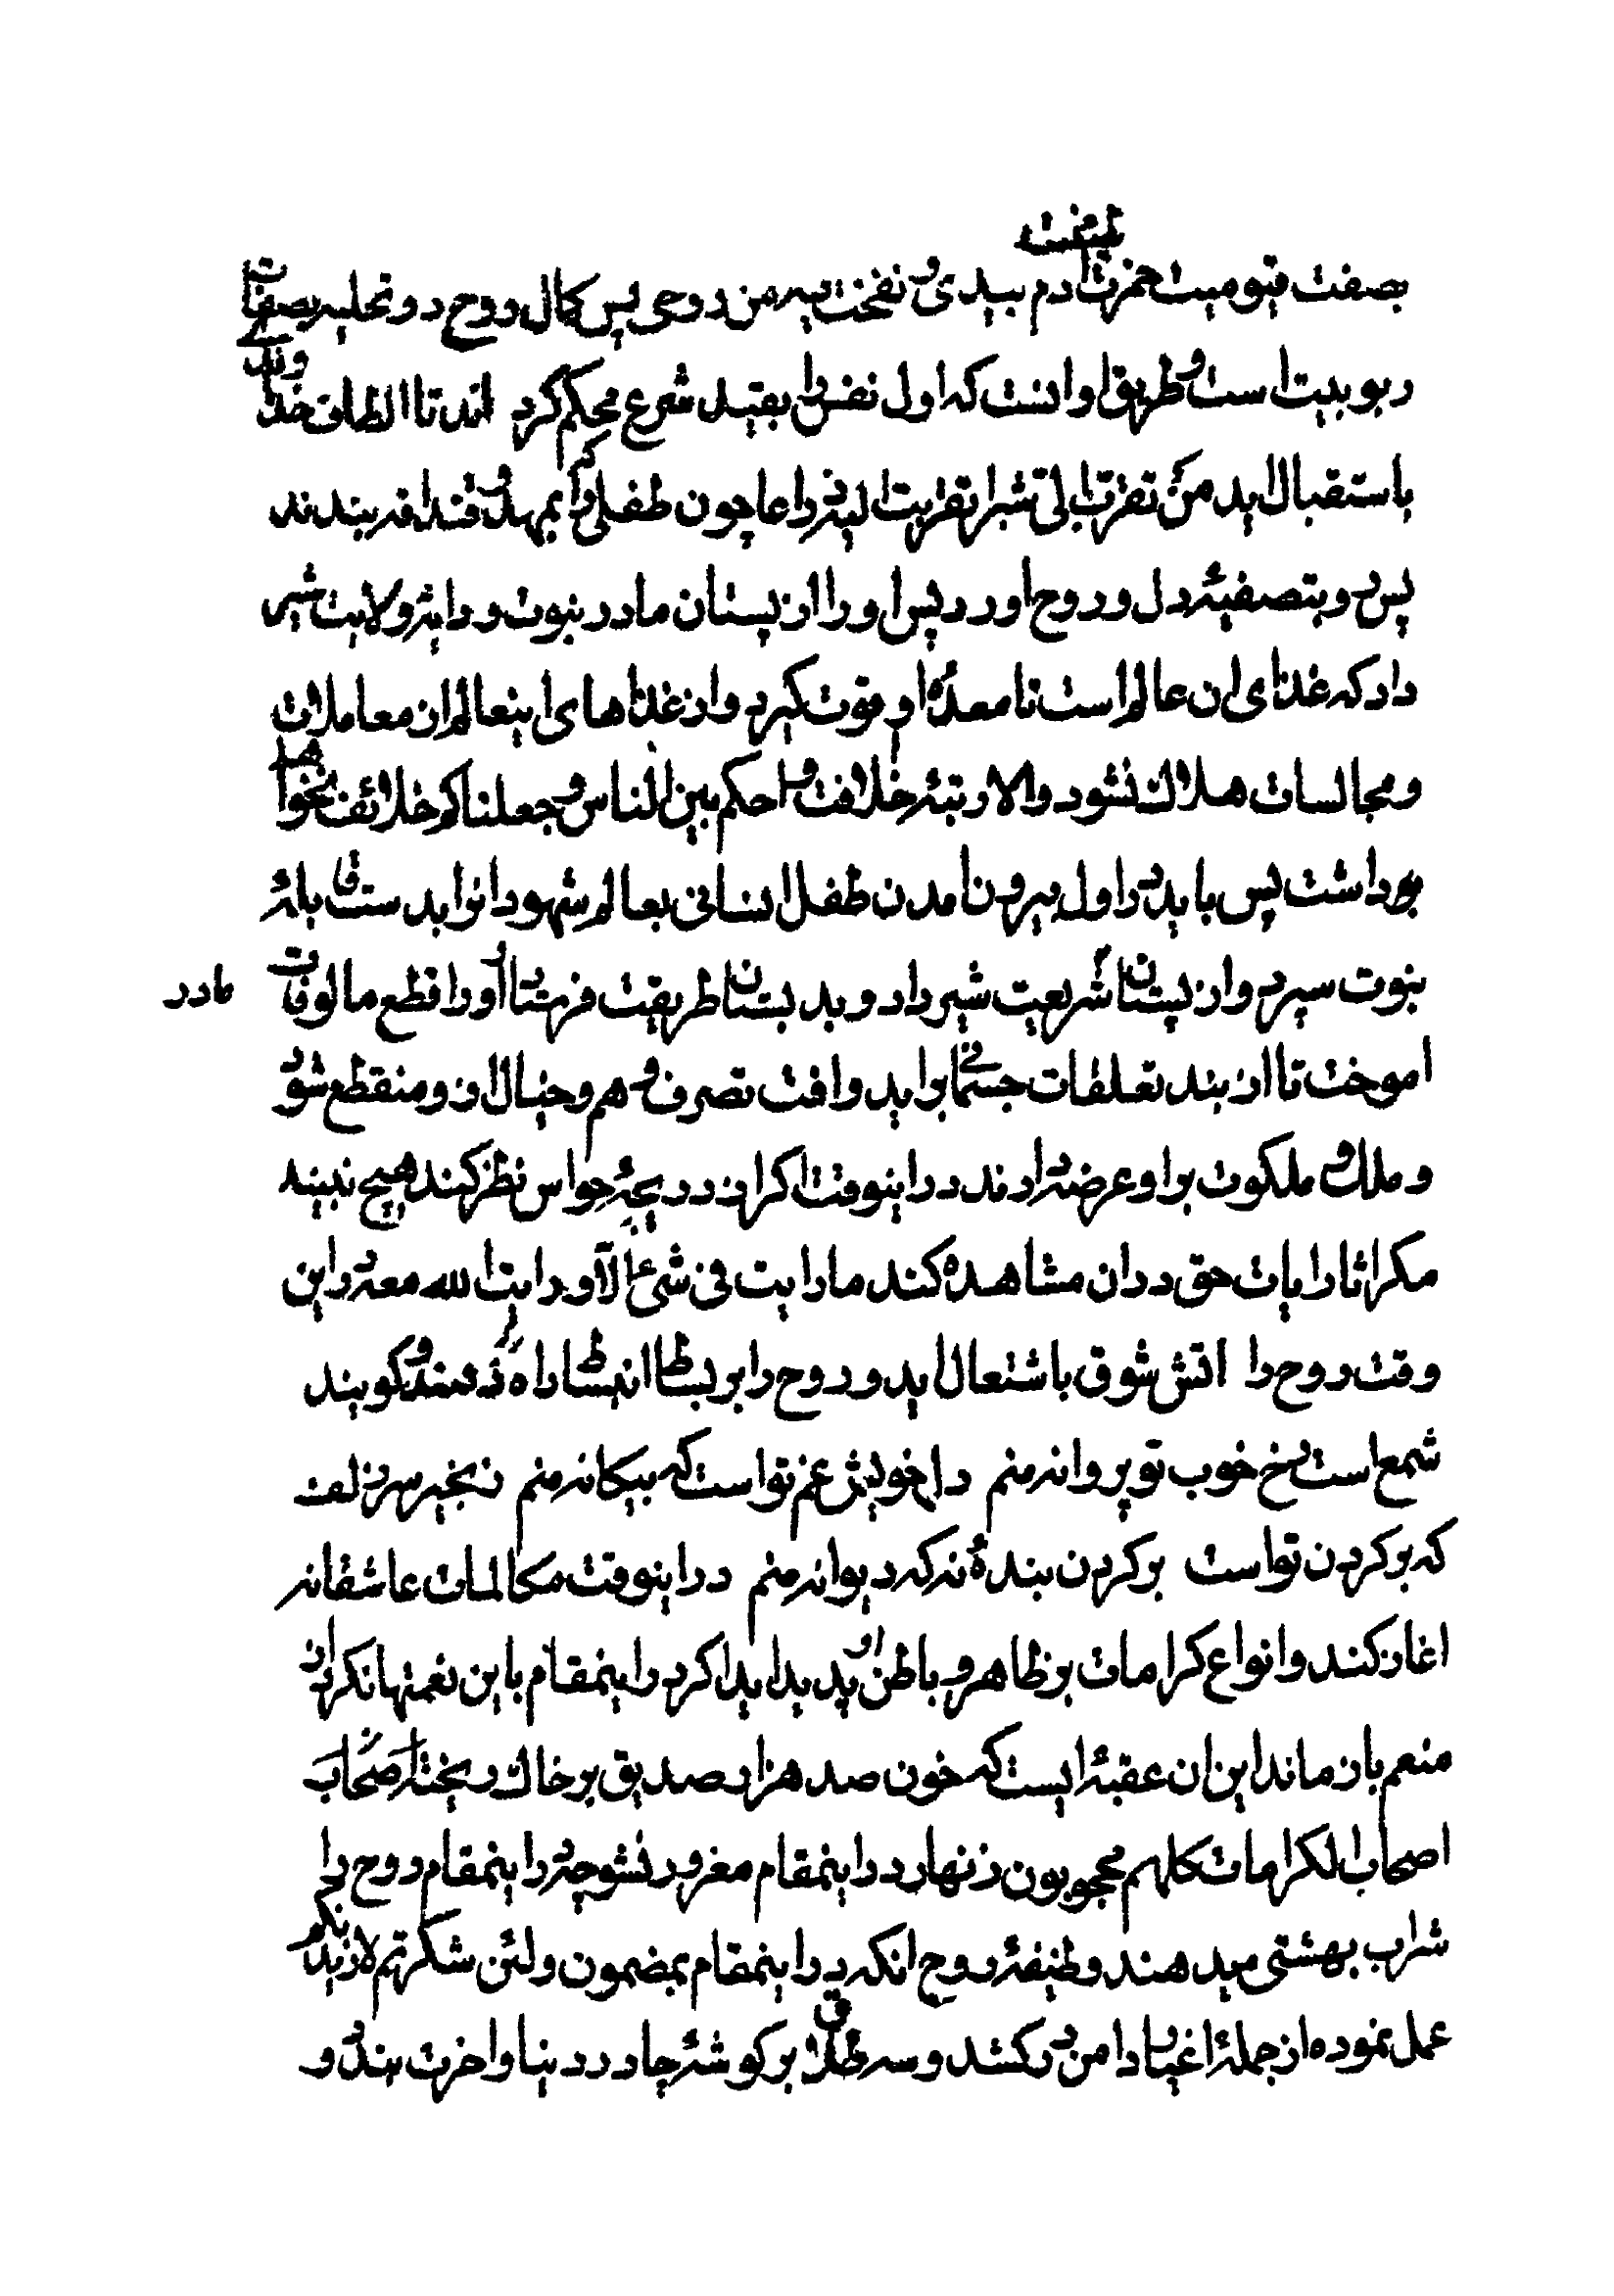 بصفت قیومیت خمرت طینت ادم بیدی و نفخت فیه من روحی پس کمال روح در تحلیه بصفات
ربوبیت است و طریق او انست که اول نفس را بقید شرع محکم کرداند تا الطاف خداوندی
باستقبال اید من تقرب الی شبرا تقربت الیه ذراعا چون طفلی را که بمهد و قنداقه ببندند
پس رو بتصفیهٔ دل و روح اورد پس او را از پستان مادر نبوت و دایهٔ ولایت شیر
داد که غذای ان عالم است تا معدهٔ او قوت کیرد و از غذاهای اینعالم از معاملات
و مجالسات هلاک نشود والا رتبهٔ خلافت و احکم بین الناس و جعلناکم خلائف نخواهد
برداشت پس باید در اول بیرون امدن طفل انسانی بعالم شهود انرا بدست قابلهٔ
نبوت سپرد و از پستان شریعت شیر داد و بدبستان طریقت فرستد تا او را قطع مالوفات مادر
اموخت تا از بند تعلقات جسمانی براید و افت تصرف وهم و خیال از و منقطع شود
و ملک و ملکوت بر او عرضه دارند در اینوقت اکر از دریچهٔ حواس نظر کند هیچ نبیند
مکر اثار ایات حق در ان مشاهده کند ما رایت فی شیء الا و رایت الله معه در این
وقت روح را اتش شوق باشتعال اید و روح را بر بساط انبساط راه دهند و کویند
شمع است رخ خوب تو پروانه منم دل خویش غم تو است که بیکانه منم زنجیر سر زلف
که بر کردن تو است بر کردن بندهٔ نه که دیوانه منم در اینوقت مکالمات عاشقانه
اغاز کند و انواع کرامات بر ظاهر و باطن او پدید اید اکر در اینمقام باین نعمتها نکرد از
منعم باز ماند این ان عقبهٔ ایست که خون صد هزار صدیق بر خاک ریخته اصحاب
اصحاب الکرامات کلهم محجوبون زنهار در اینمقام مغرور نشو چه در اینمقام روح را
شراب بهشتی میدهند وظیفهٔ روح انکه در اینمقام بمضمون ولئن شکرتم لازیدنکم
عمل نموده از جملهٔ اغیار دامن در کشد و سه طلاق بر کوشهٔ چادر دنیا و اخرت بندد و